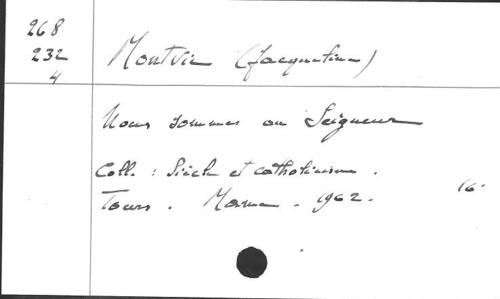 268
232
4
Montvic (Jacqueline)
Nous sommes au Seigneur
Coll. : Siècle et catholicisme.
Tours. Mame. 1962. 16.